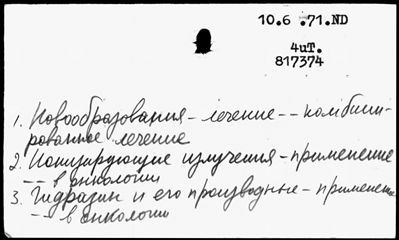 10.6 .71.ND
4иТ.
817374
1. Новообразования - лечение -- комбини-
рованное лечение
2. Ионизирующие излучения - применение
-- в онкологии
3. Гидразин и его производные - применение
-- в онкологии